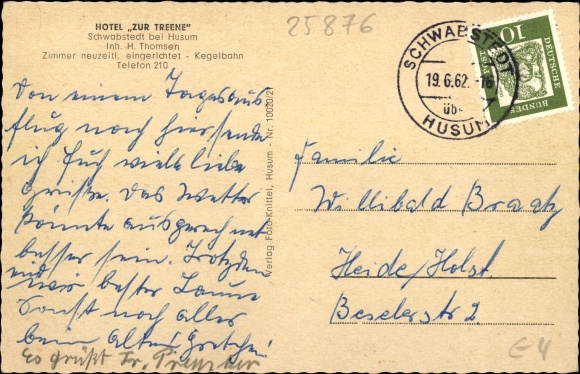 HOTEL „ZUR TREENE"
Schwabstedt bei Husum
Inh. H. Thomsen
Zimmer neuzeitl. eingerichtet - Kegelbahn
Telefon 210
25876
SCHWABSTEDT
19.6.62.-16
üb
HUSUM
10
DEUTSCHE
BUNDESPOST
Von einem Tagesaus
flug nach hier sende
ich Euch viele liebe
Grüße. Das Wetter
könnte ausgerechnet
besser sein. Trotzdem
sind wir bester Laune
Sonst noch alles
beim alten
Es grüßt Fr.
Verlag Foto-Knittel, Husum - Nr. 10020/21
Familie
Willibald Braatz
Heide/Holst.
Beselerstr 2
E4